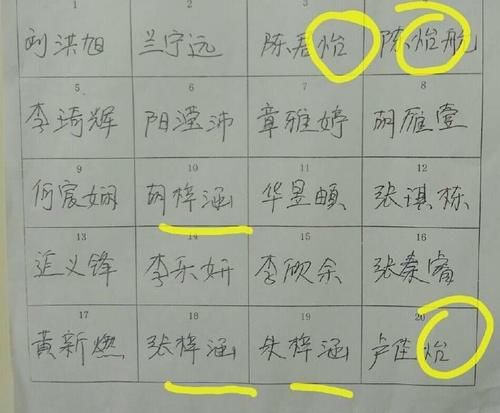 1 2 3
刘洪旭 兰宁远 陈君怡 陈怡航
5 6 7 8
李琦辉 阳滢沛 章雅婷 胡雁壹
9 10 11 12
何宸娴 胡梓涵 华昱頔 张琪栋
13 14 15 16
义锋 李乐妍 李欣余 张睿
17 18 19 20
黄新燃 张梓涵 朱梓涵 卢佳怡